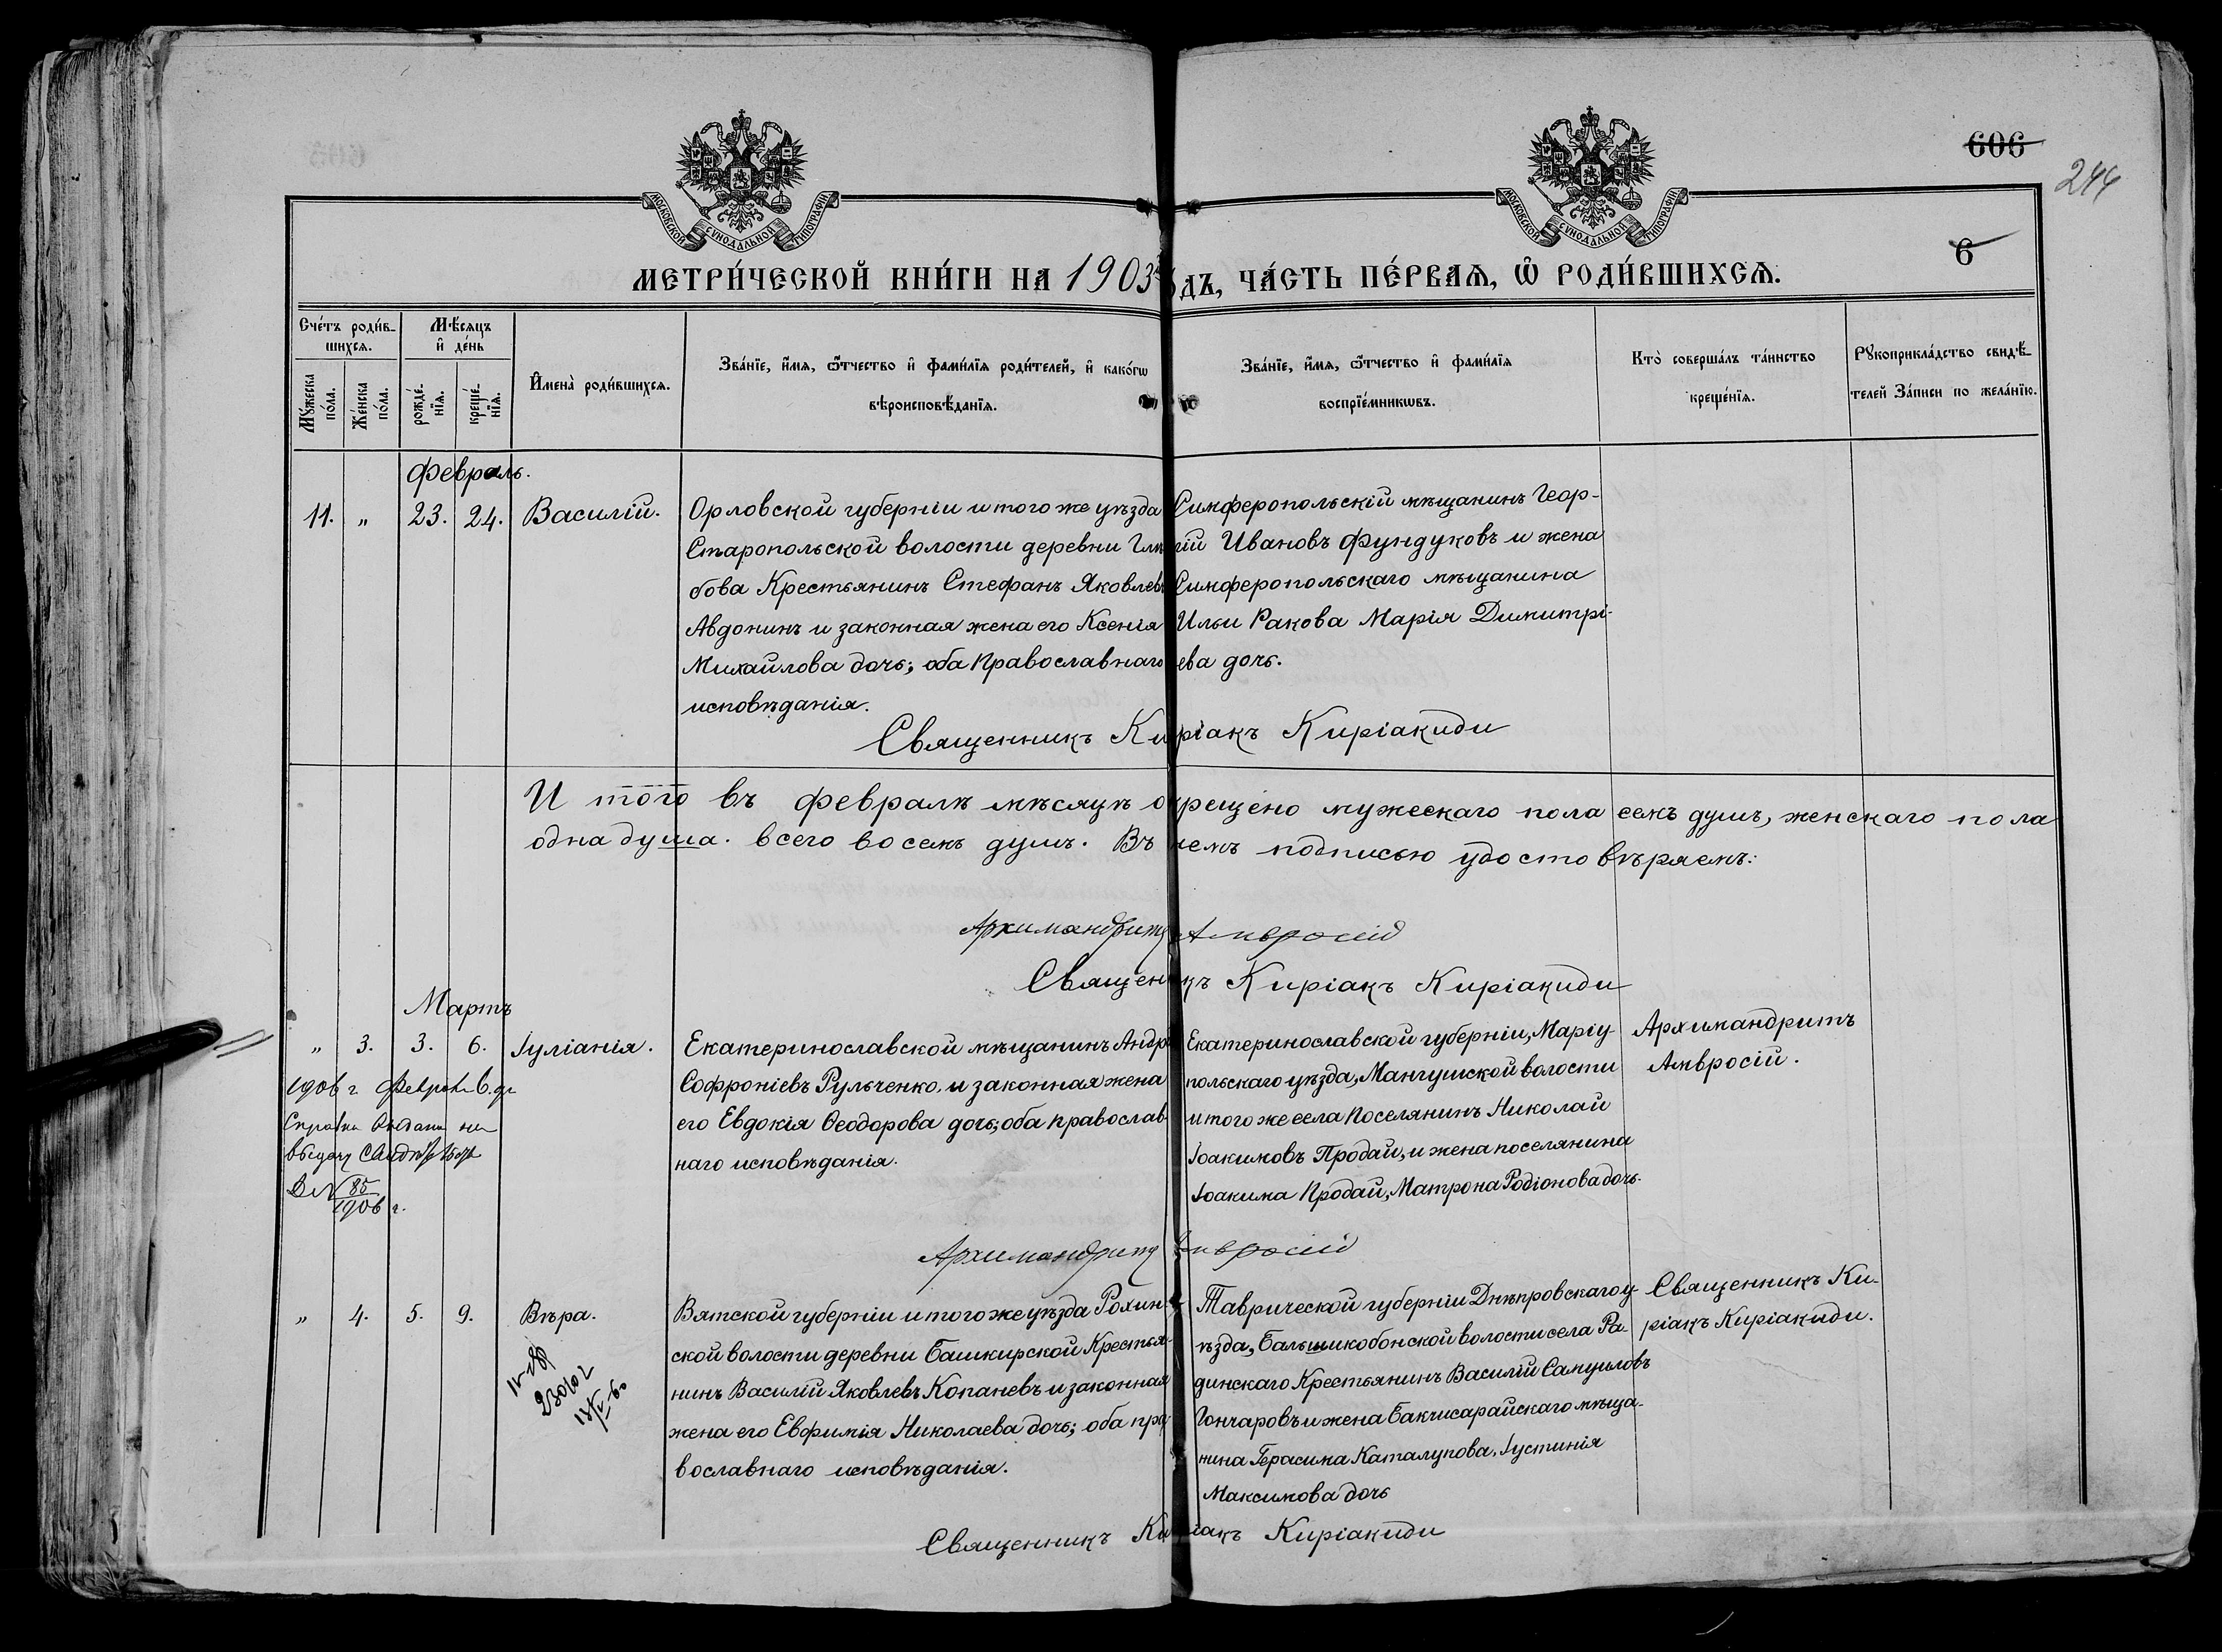 606
244
6
МОСКОВСКОЙ СѴНОДАЛЬНОЙ ТИПОГРАФІИ
МОСКОВСКОЙ СѴНОДАЛЬНОЙ ТИПОГРАФІИ
МЕТРИ́ЧЕСКОЙ КНИ́ГИ НА 1903 ГОДЪ, ЧА́СТЬ ПЕ́РВАѦ, Ѡ҆ РОДИ́ВШИХСѦ.
Сче́тъ роди́в-
шихсѧ.
Мꙋ́жеска по́ла.
Же́нска по́ла.
Мѣ́сѧцъ
и҆ де́нь
рожде́-
нїѧ.
креще́-
нїѧ.
И҆мена̀ роди́вшихсѧ.
Зва́нїе, и҆́мѧ, ѻ҆́тчество и҆ фами́лїѧ роди́телей, и҆ како́гѡ
вѣроисповѣ́данїѧ.
Зва́нїе, и҆́мѧ, ѻ҆́тчество и҆ фами́лїѧ
воспрїе́мникѡвъ.
Кто̀ соверша́лъ та́инство
креще́нїѧ.
Рꙋкоприкла́дство свидѣ́-
телей за́писи по жела́нїю.
Февраль.
11. „ 23. 24. Василій.
Орловской губерніи и того же уѣзда
Старопольской волости деревни
бова Крестьянинъ Стефанъ Яковлевъ
Авдонинъ и законная жена его Ксенія
Михайлова дочь; оба Православнаго
исповѣданія.
Симферопольскій мѣщанинъ Геор-
гій Ивановъ Фундуковъ и жена
Симферопольскаго мѣщанина
Ильи Ракова Марія Димитрі-
ева дочь.
Священникъ Киріакъ Киріакиди
И того въ февралѣ мѣсяцѣ окрещено мужескаго пола семь душъ, женскаго пола
одна душа. всего восемь душъ. Въ чемъ подписью удостовѣряемъ:
Архимандритъ Амвросій
Священникъ Киріакъ Киріакиди
Мартъ
„ 3. 3. 6. Іуліанія.
Екатеринославской мѣщанинъ Андрей
Софроніевъ Рульченко, и законная жена
его Евдокія Ѳеодорова дочь; оба православ-
наго исповѣданія.
Екатеринославской губерніи, Маріу-
польскаго уѣзда, Мангушской волости
и того же села Поселянинъ Николай
Іоакимовъ Продай, и жена поселянина
Іоакима Продай, Матрона Родіонова дочь.
Архимандритъ
Амвросій.
1906 г. Февраля 6. дн
Справка на
выдачу
№ 85
1906 г.
Архимандритъ Амвросій
„ 4. 5. 9. Вѣра.
Вятской губерніи и того же уѣзда Рохин-
ской волости деревни Башкирской Крестья-
нинъ Василій Яковлевъ Копаневъ и законная
жена его Евфимія Николаева дочь; оба пра-
вославнаго исповѣданія.
Таврической губерніи Днѣпровскаго у-
ѣзда, волости села Ра-
динскаго Крестьянинъ Василій Самуиловъ
Гончаровъ и жена Бакчисарайскаго мѣща-
нина Герасима Каталупова, Іустинія
Максимова дочь
Священникъ Ки-
ріакъ Киріакиди.
Священникъ Киріакъ Киріакиди